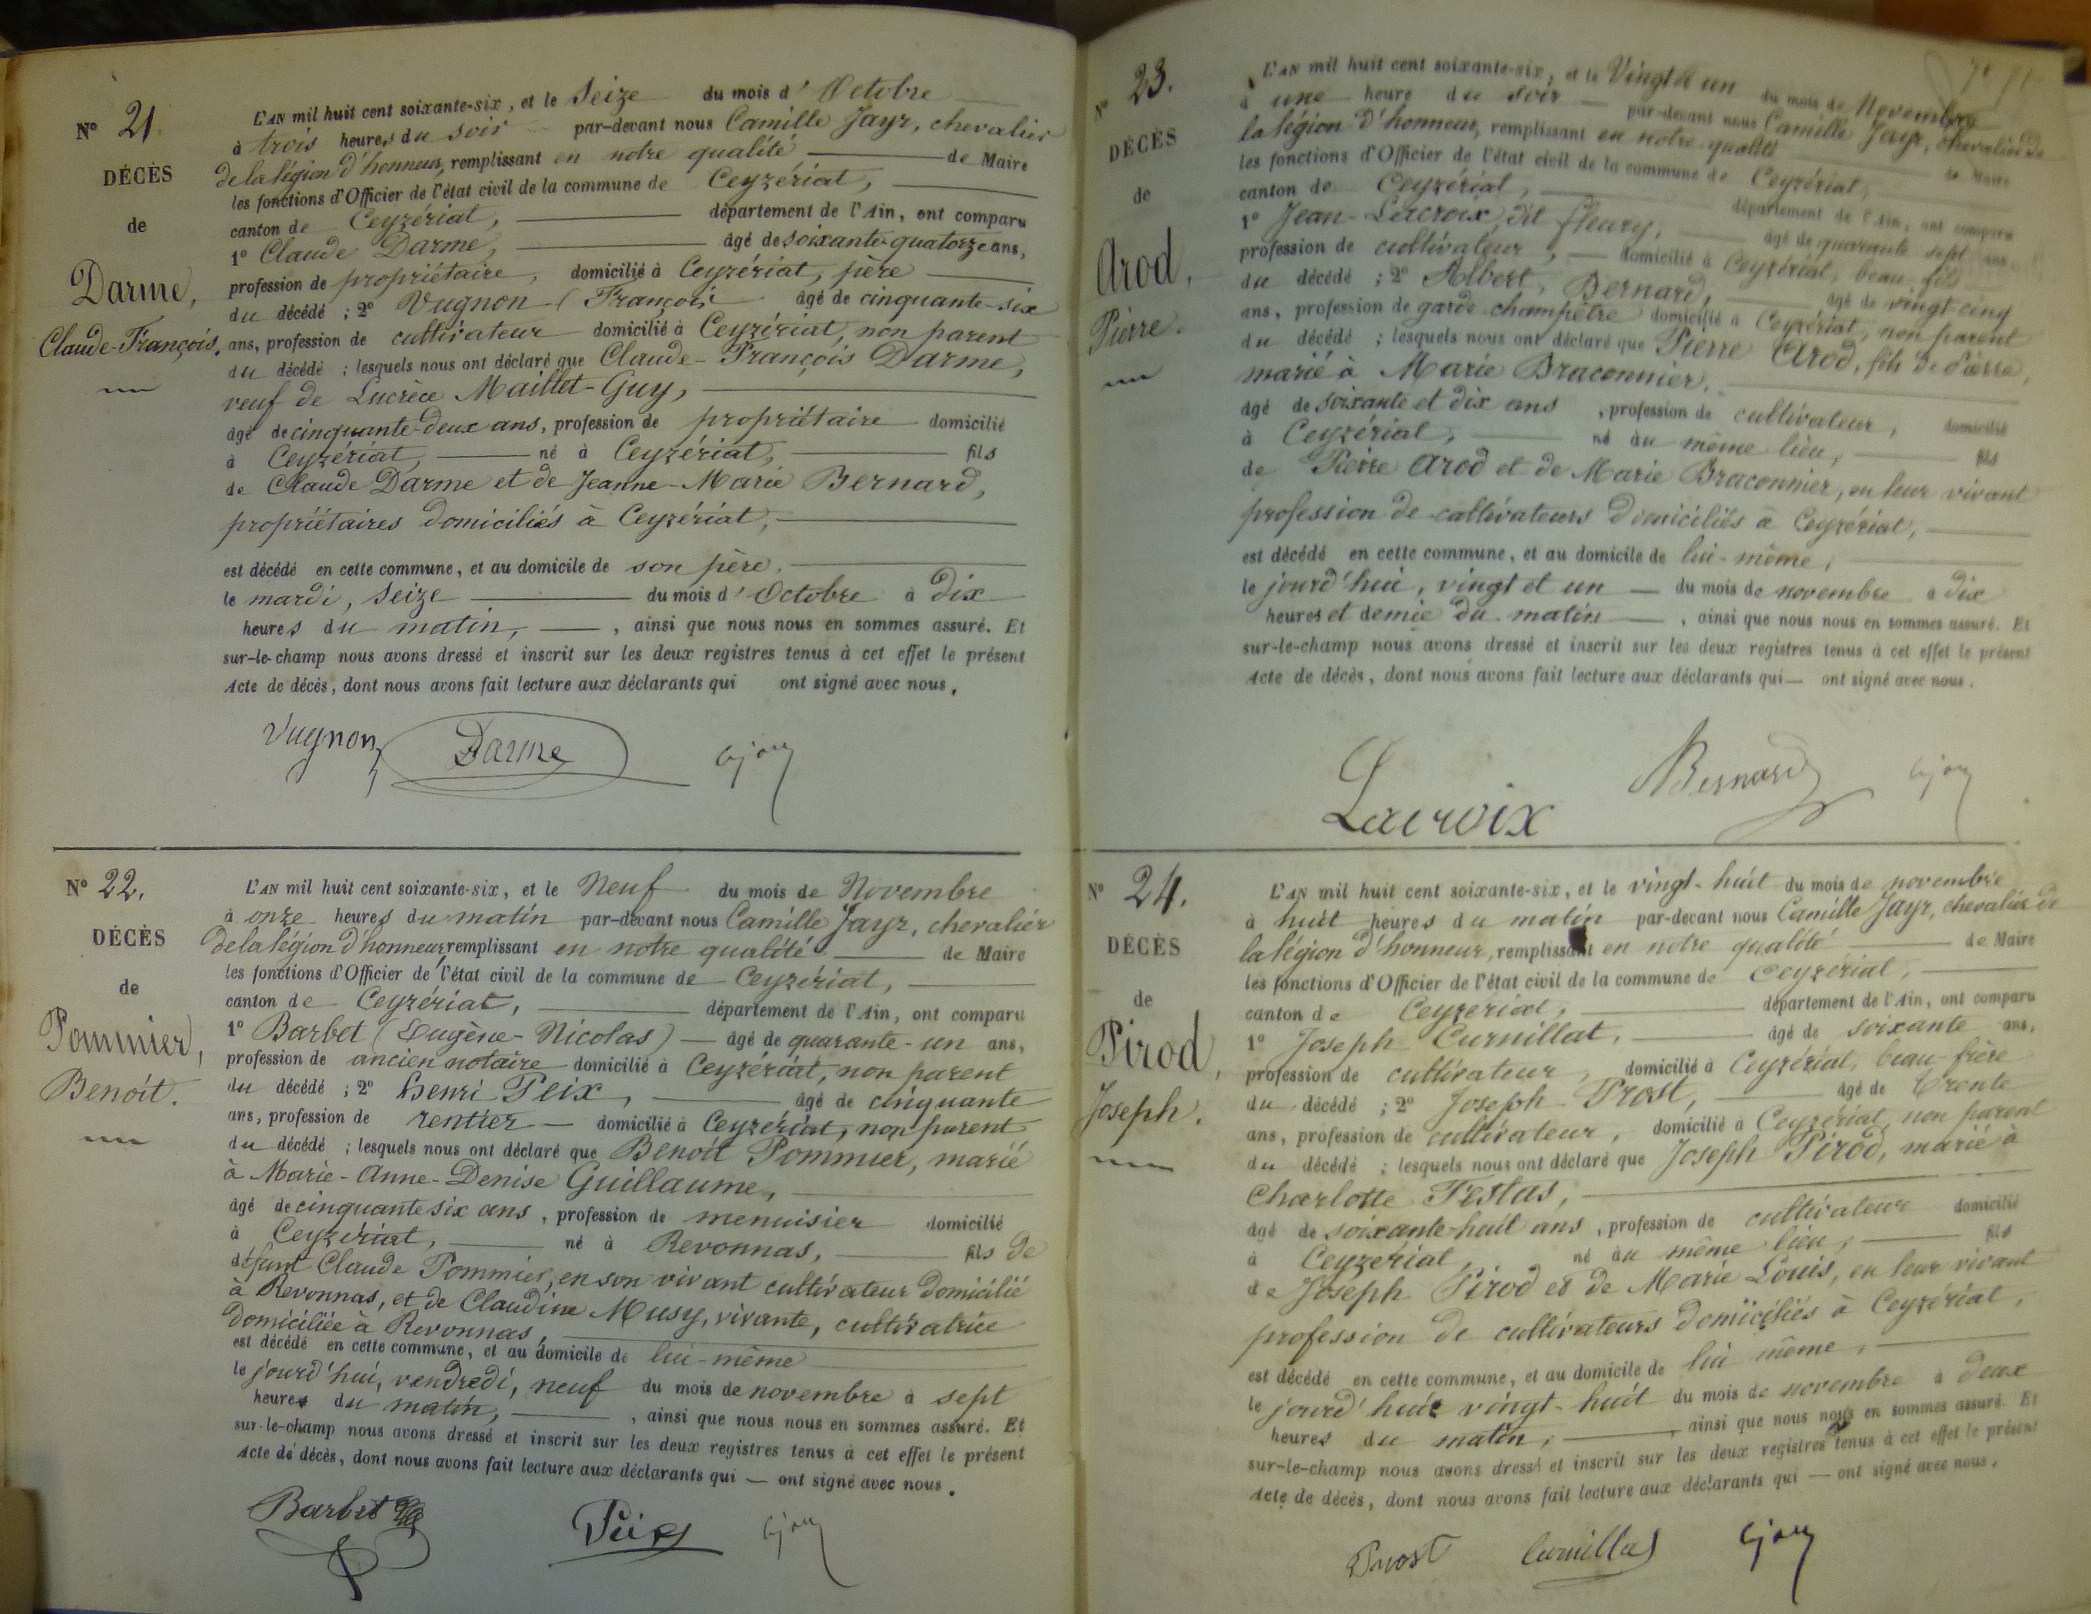 N° 21.
DÉCÈS
de
Darme,
Claude-François.
L'AN mil huit cent soixante-six, et le Seize du mois d'Octobre
à trois heures du soir par-devant nous Camille Jayr, chevalier
de la légion d'honneur, remplissant en notre qualité de Maire
les fonctions d'Officier de l'état civil de la commune de Ceyzériat,
canton de Ceyzériat, département de l'Ain, ont comparu
1° Claude Darme, âgé de soixante-quatorze ans,
profession de propriétaire, domicilié à Ceyzériat, père
du décédé ; 2° Vugnon (François âgé de cinquante-six
ans, profession de cultivateur domicilié à Ceyzériat, non parent
du décédé ; lesquels nous ont déclaré que Claude-François Darme,
veuf de Lucrèce Maillet-Guy,
âgé de cinquante-deux ans, profession de propriétaire domicilié
à Ceyzériat, né à Ceyzériat, fils
de Claude Darme et de Jeanne-Marie Bernard,
propriétaires domiciliés à Ceyzériat,
est décédé en cette commune, et au domicile de son père.
le mardi, seize du mois d'Octobre à dix
heures du matin, , ainsi que nous nous en sommes assuré. Et
sur-le-champ nous avons dressé et inscrit sur les deux registres tenus à cet effet le présent
Acte de décès, dont nous avons fait lecture aux déclarants qui ont signé avec nous.
Vugnon Darme
N° 22.
DÉCÈS
de
Pommier,
Benoît.
L'AN mil huit cent soixante-six, et le Neuf du mois de Novembre
à onze heures du matin par-devant nous Camille Jayr, chevalier
de la légion d'honneur, remplissant en notre qualité de Maire
les fonctions d'Officier de l'état civil de la commune de Ceyzériat,
canton de Ceyzériat, département de l'Ain, ont comparu
1° Barbet (Eugène-Nicolas) âgé de quarante-un ans,
profession de ancien notaire domicilié à Ceyzériat, non parent
du décédé ; 2° Henri Peix, âgé de cinquante
ans, profession de rentier domicilié à Ceyzériat, non parent
du décédé ; lesquels nous ont déclaré que Benoît Pommier, marié
à Marie-Anne-Denise Guillaume,
âgé de cinquante six ans, profession de menuisier domicilié
à Ceyzériat, né à Revonnas, fils de
défunt Claude Pommier, en son vivant cultivateur domicilié
à Revonnas, et de Claudine Musy, vivante, cultivatrice
domiciliée à Revonnas,
est décédé en cette commune, et au domicile de lui-même
le jourd'hui, vendredi, neuf du mois de novembre à sept
heures du matin, , ainsi que nous nous en sommes assuré. Et
sur-le-champ nous avons dressé et inscrit sur les deux registres tenus à cet effet le présent
Acte de décès, dont nous avons fait lecture aux déclarants qui — ont signé avec nous.
Barbet Peix
N° 23.
DÉCÈS
de
Arod,
Pierre.
L'AN mil huit cent soixante-six, et le Vingt et un du mois de Novembre
à une heure du soir par-devant nous Camille Jayr, chevalier de
la légion d'honneur, remplissant en notre qualité de Maire
les fonctions d'Officier de l'état civil de la commune de Ceyzériat,
canton de Ceyzériat, département de l'Ain, ont comparu
1° Jean-Lacroix dit fleury, âgé de quarante sept ans,
profession de cultivateur, domicilié à Ceyzériat, beau-fils
du décédé ; 2° Albert, Bernard, âgé de vingt cinq
ans, profession de garde-champêtre domicilié à Ceyzériat, non parent
du décédé ; lesquels nous ont déclaré que Pierre Arod, fils de Pierre,
marié à Marie Braconnier,
âgé de soixante et dix ans, profession de cultivateur, domicilié
à Ceyzériat, né au même lieu, fils
de Pierre Arod et de Marie Braconnier, en leur vivant
profession de cultivateurs domiciliés à Ceyzériat,
est décédé en cette commune, et au domicile de lui-même,
le jourd'hui, vingt et un — du mois de novembre à dix
heures et demie du matin — , ainsi que nous nous en sommes assuré. Et
sur-le-champ nous avons dressé et inscrit sur les deux registres tenus à cet effet le présent
Acte de décès, dont nous avons fait lecture aux déclarants qui — ont signé avec nous.
Lacroix Bernard
N° 24.
DÉCÈS
de
Pirod,
Joseph.
L'AN mil huit cent soixante-six, et le vingt-huit du mois de novembre
à huit heures du matin par-devant nous Camille Jayr, chevalier de
la légion d'honneur, remplissant en notre qualité de Maire
les fonctions d'Officier de l'état civil de la commune de Ceyzériat,
canton de Ceyzériat, département de l'Ain, ont comparu
1° Joseph Curnillat, âgé de soixante ans,
profession de cultivateur, domicilié à Ceyzériat, beau-frère
du décédé ; 2° Joseph Prost, âgé de trente
ans, profession de cultivateur, domicilié à Ceyzériat, non parent
du décédé ; lesquels nous ont déclaré que Joseph Pirod, marié à
Charlotte Testas,
âgé de soixante-huit ans, profession de cultivateur domicilié
à Ceyzériat, né au même lieu, fils
de Joseph Pirod et de Marie Louis, en leur vivant
profession de cultivateurs domiciliés à Ceyzériat,
est décédé en cette commune, et au domicile de lui même,
le jourd'hui vingt-huit du mois de novembre à deux
heures du matin, , ainsi que nous nous en sommes assuré. Et
sur-le-champ nous avons dressé et inscrit sur les deux registres tenus à cet effet le présent
Acte de décès, dont nous avons fait lecture aux déclarants qui — ont signé avec nous.
Prost Curnillat